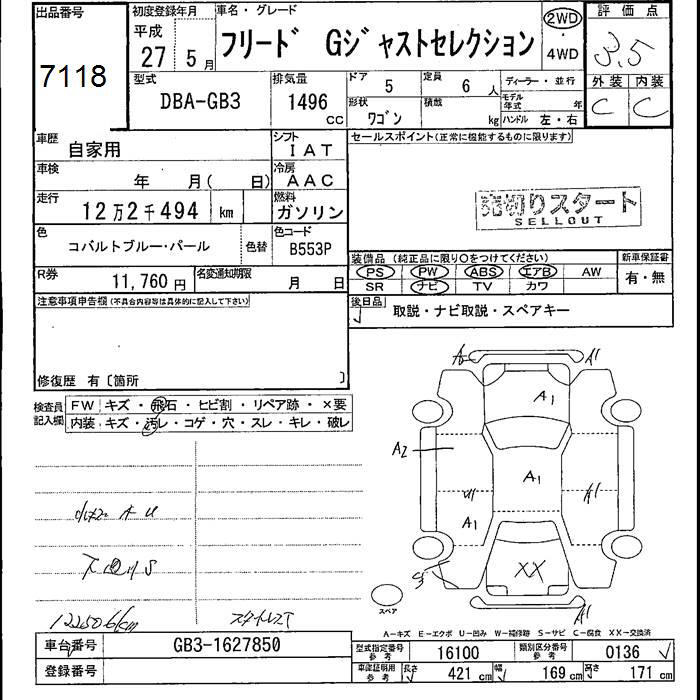 出品番号
7118
初度登録年月
平成
27 5月
車名・グレード
フリード Gジャストセレクション
2WD
・
4WD
評価点
3.5
外装 内装
C C
型式
DBA-GB3
排気量
1496
CC
ドア
5
定員
6 人
ディーラー・並行
モデル年式 年
形状
ワゴン
積載
kg
ハンドル 左・右
車歴
自家用
シフト
IAT
セールスポイント(正常に機能するものに限ります)
車検
年 月( 日)
冷房
AAC
走行
12万2千494 km
燃料
ガソリン
売切りスタート
SELLOUT
色
コバルトブルー・パール
色替
色コード
B553P
装備品 (純正品に限り○をつけてください)
PS PW ABS エアB AW
SR ナビ TV カワ
新車保証書
有・無
R券
11,760 円
名変通知期限
月 日
後日品
取説・ナビ取説・スペアキー
注意事項申告欄(不具合内容等は具体的に記入して下さい)
修復歴 有〔箇所 〕
検査員記入欄
FW キズ・飛石・ヒビ割・リペア跡・×要
内装 キズ・汚レ・コゲ・穴・スレ・キレ・破レ
A1
A1
A2
A1
A1
A1
A1
XX
A1
スペア
A U
S
122506km
A-キズ E-エクボ U-凹み W-補修跡 S-サビ C-腐食 XX-交換済
車台番号
GB3-1627850
登録番号
型式指定番号
参考
16100
類別区分番号
参考
0136
車庫証明用
参考
長さ
421 cm
幅
169 cm
高さ
171 cm